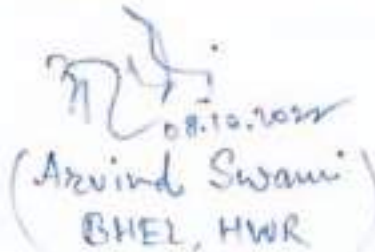 08.10.2022
(Arvind Swami)
BHEL, HWR